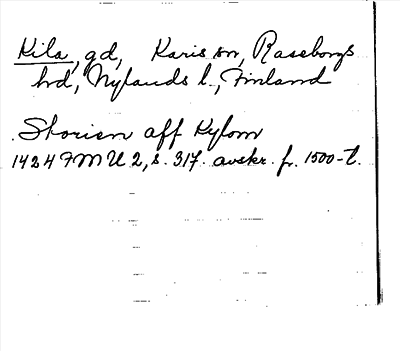 Kila, gd, Karis sn, Raseborgs
hd, Nylands l., Finland
Storien aff Kylom
1424 FMU 2, s. 317. avskr. fr. 1500-t.